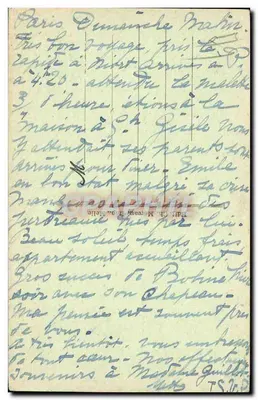 Paris Dimanche Matin.
Très bon voyage pris le
rapide à Niort arrivée à P.
à 4h20 - attendu la malette
3/4 d'heure, étions à la
maison à 5h Gisèle nous
y attendait ses parents sont
arrivés pour diner. Emile
en bon état malgré
mans
perdreaux tués par lui.
Beau soleil temps frais
appartement accueillant
Gros succès de Bobine hier
soir avec son chapeau -
Ma pensée est souvent près
de vous.
à très bientôt. vous embrasse
de tout cœur - nos affectueux
souvenirs à Madame